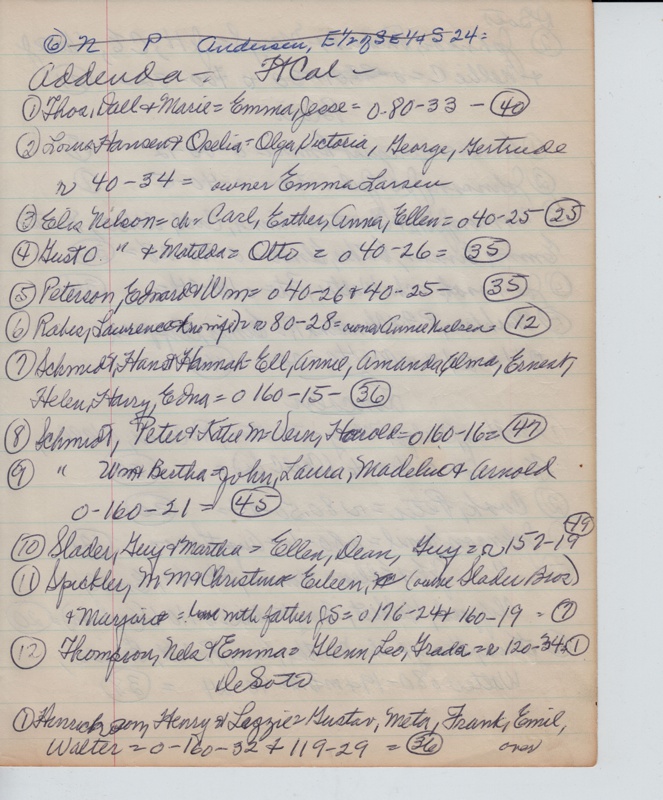 ⑥ N P Andersen, E½ of SE¼ S 24=
Addenda = Ft Cal -
① Thos, Dall & Marie = Emma, Jesse = 0-80-33 - ㊵
② Louis Hansen & Opelia = Olga, Victoria, George, Gertrude
r 40-34 = owner Emma Larsen
③ Elis Nelson = ch Carl, Esther, Anna, Ellen = 0 40-25 ㉕
④ Gust O. " & Matilda = Otto = 0 40-26 = ㉟
⑤ Peterson, Edward & Wm = 0 40-26 & 40-25 - ㉟
⑥ Rabes, Lawrence r 80-28 = owner Annie Nielsen = ⑫
⑦ Schmidt, Hans & Hannah = Ell, Annie, Amanda, Alma, Ernest,
Helen, Harry, Edna = 0 160-15 - ㊱
⑧ Schmidt, Peter & Katie M = Vern, Harold = 0 160-16 = ㊼
⑨ " Wm & Bertha = John, Laura, & Arnold
0-160-21 = ㊺
⑩ Slader, Guy & Martha = Ellen, Dean, Guy = r 152-19 -19
⑪ Spickler, M & Christina Eileen, (owner Slader Bros)
& = with father JS = 0 176-24 & 160-19 =
⑫ Thompson, Nels & Emma = Glenn, Leo, = r 120-34 ①
DeSoto
① Henry & Lizzie = Gustav, Meta, Frank, Emil,
Walter = 0-160-32 & 119-29 = ㊱ over